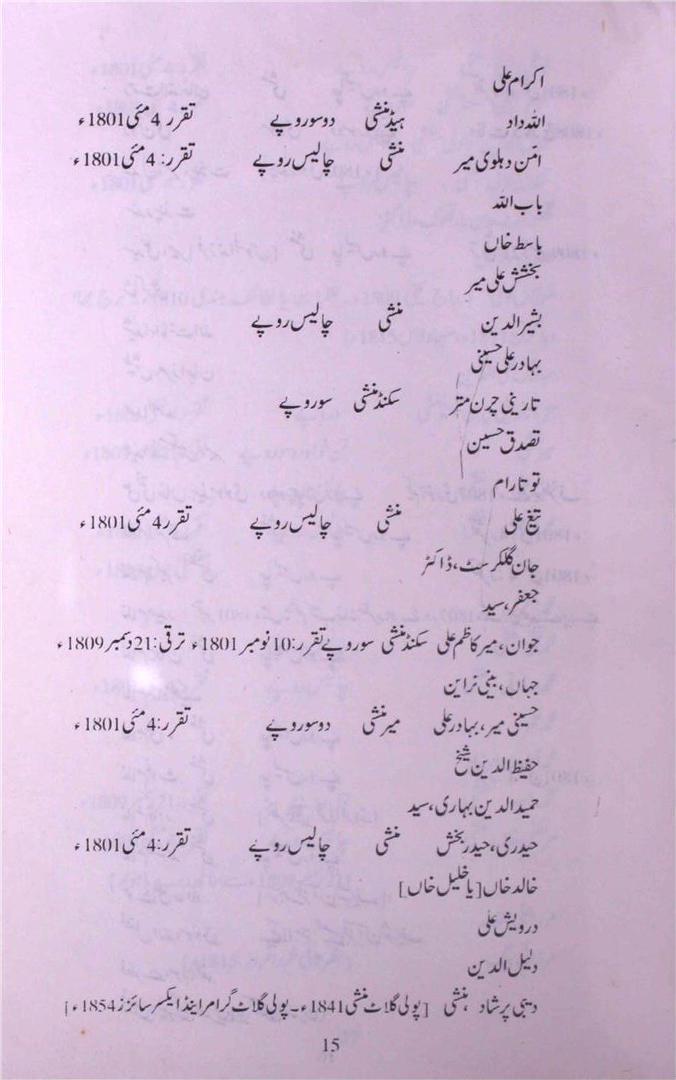 اکرام علی
اللہ داد ہیڈ منشی دو سو روپے تقرر 4 مئی 1801ء
امّن دہلوی میر منشی چالیس روپے تقرر: 4 مئی 1801ء
باب اللہ
باسط خاں
بخشش علی میر
بشیر الدین منشی چالیس روپے
بہادر علی حسینی
تارینی چرن متر سکنڈ منشی سو روپے
تصدق حسین
توتا رام
تیغ علی منشی چالیس روپے تقرر 4 مئی 1801ء
جان گلکرسٹ، ڈاکٹر
جعفر، سید
جوان، میر کاظم علی سکنڈ منشی سو روپے تقرر: 10 نومبر 1801ء ترقی: 21 دسمبر 1809ء
جہاں، بینی نراین
حسینی میر، بہادر علی میر منشی دو سو روپے تقرر: 4 مئی 1801ء
حفیظ الدین شیخ
حمید الدین بہاری، سید
حیدری، حیدر بخش منشی چالیس روپے تقرر: 4 مئی 1801ء
خالد خاں [یا خلیل خاں]
درویش علی
دلیل الدین
دیبی پرشاد، منشی [پولی گلاٹ منشی 1841ء۔ پولی گلاٹ گرامر اینڈ ایکسر سائزز 1854ء]
15